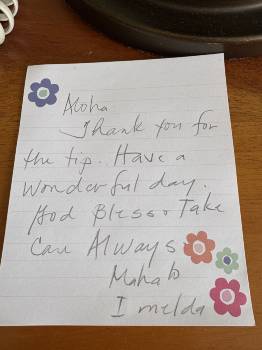 Aloha
Thank you for
the tip. Have a
Wonderful day.
God Bless & Take
Care Always
Mahalo
Imelda